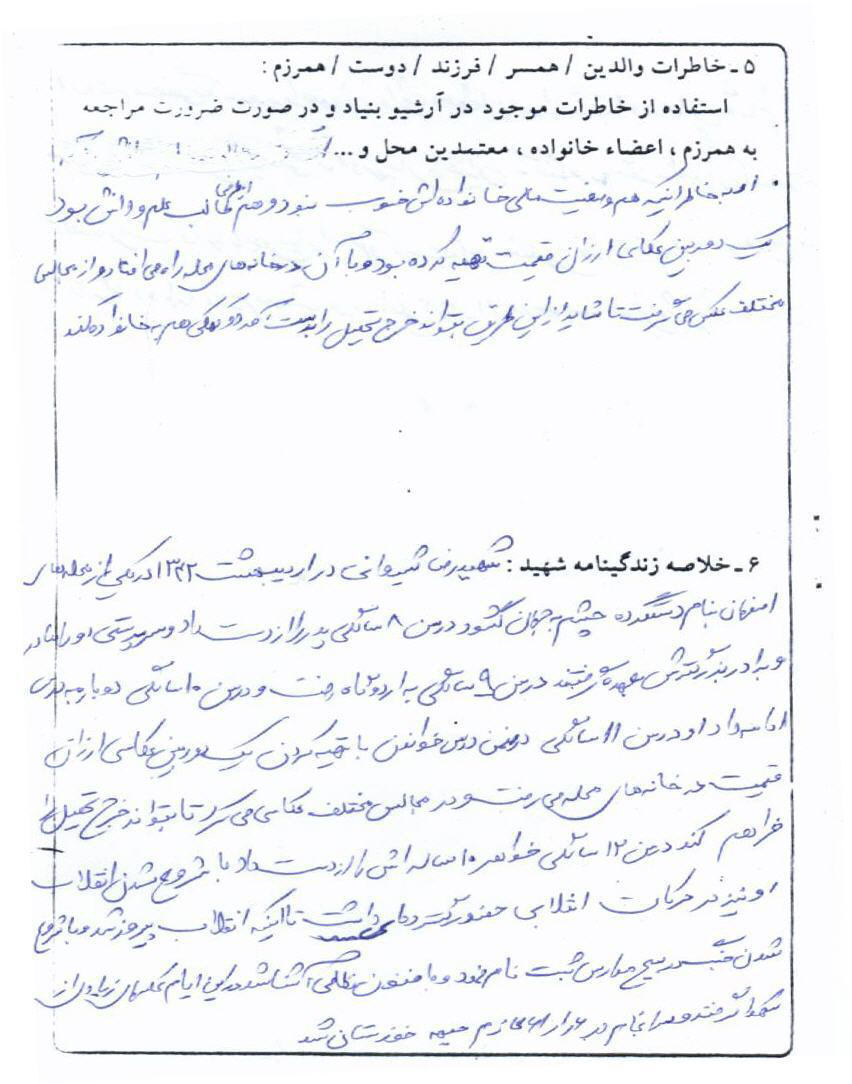 ۵ ـ خاطرات والدین / همسر / فرزند / دوست / همرزم :
استفاده از خاطرات موجود در آرشیو بنیاد و در صورت ضرورت مراجعه
به همرزم ، اعضاء خانواده ، معتمدین محل و ...
خاطر اینکه هم وضعیت مالی خانواده اش خوب نبود و هم طالب علم و دانش بود
یک دوربین عکاسی ارزان قیمت تهیه کرده بود و با آن در خانه های محله راه می افتاد و از مجالس
مختلف عکس می گرفت تا شاید از این طریق بتواند خرج تحصیل را بدست آورد و کمکی هم به خانواده کند
۶ ـ خلاصه زندگینامه شهید : شهید رضا شیروانی در اردیبهشت ۱۳۴۲ در یکی از محله های
اصفهان بنام دستگرده چشم به جهان گشود در سن ۸ سالگی پدر را از دست داد و سرپرستی او را مادر
و برادر بزرگترش بعهده گرفتند در سن ۹ سالگی به اردوگاه رفت و در سن ۱۰ سالگی دوباره به درس
ادامه داد او در سن ۱۱ سالگی در ضمن درس خواندن با تهیه کردن یک دوربین عکاسی ارزان
قیمت در خانه های محله می رفت و در مجالس مختلف عکاسی می کرد تا بتواند خرج تحصیل را
فراهم کند در سن ۱۲ سالگی خواهر ۱۰ ساله اش را از دست داد با شروع شدن انقلاب
او نیز در حرکات انقلابی حضور گسترده ای داشت تا اینکه انقلاب پیروز شد و با شروع
شدن جنگ در بسیج مدارس ثبت نام نمود و با فنون نظامی آشنا شد در این ایام عکسهای زیادی از
شهدا گرفتند و سرانجام در عازم جبهه خوزستان شد